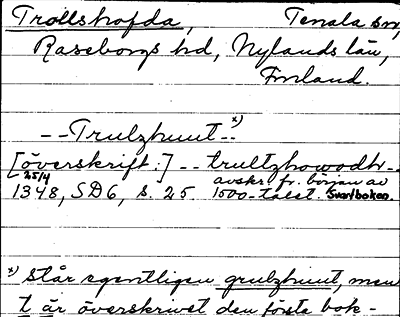 Trollshofda, Tenala sn,
Raseborgs hd, Nylands län,
Finland.
-- Trulzhuut *) --
[överskrift:] -- trultzhowodh --
25/4 avskr. fr. början av
1348, SD6, s. 25 1500-talet. Svartboken.
*) Står egentligen grulzhuut, men
t är överskrivet den första bok-